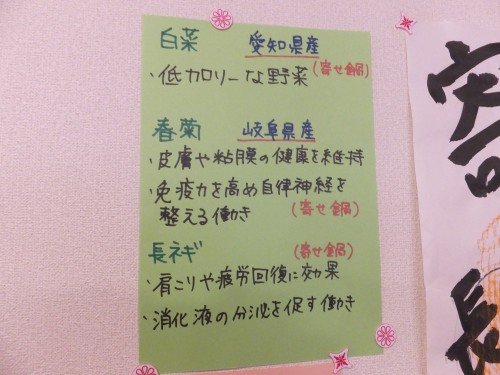 白菜 愛知県産
・低カロリーな野菜(寄せ鍋)
春菊 岐阜県産
・皮膚や粘膜の健康を維持
・免疫力を高め自律神経を
整える働き (寄せ鍋)
長ネギ (寄せ鍋)
・肩こりや疲労回復に効果
・消化液の分泌を促す働き
寄
長